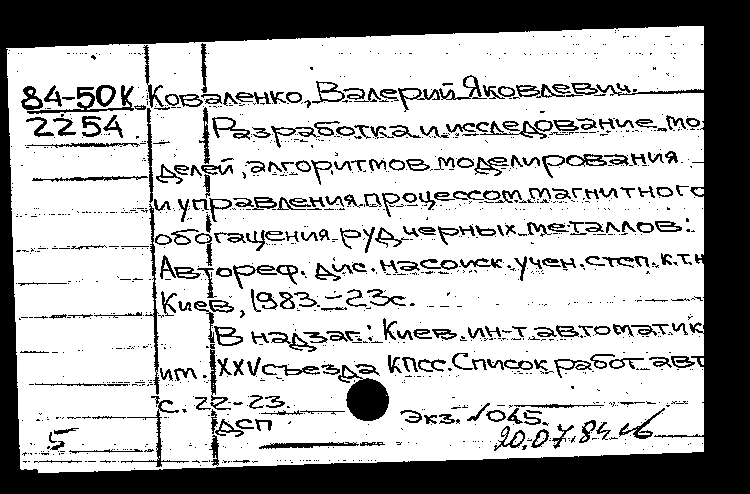 84-50К Коваленко, Валерий Яковлевич.
2254 Разработка и исследование мо
делей, алгоритмов моделирования
и управления процессом магнитного
обогащения руд черных металлов:
Автореф. дис. на соиск. учен. степ. к.т.н
Киев, 1983.-23с.
В надзаг.: Киев. ин-т автоматик
им. XXV съезда КПСС. Список работ авт
с. 22-23.
ДСП Экз. 1045.
5 20.07.84